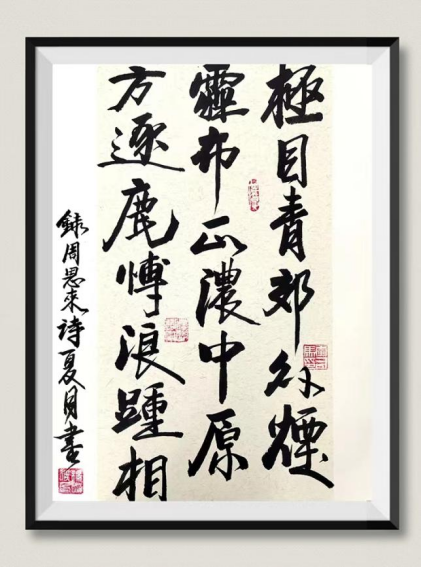 極目青郊外煙
霾布正濃中原
方逐鹿愽浪踵相
録周恩來詩夏月書